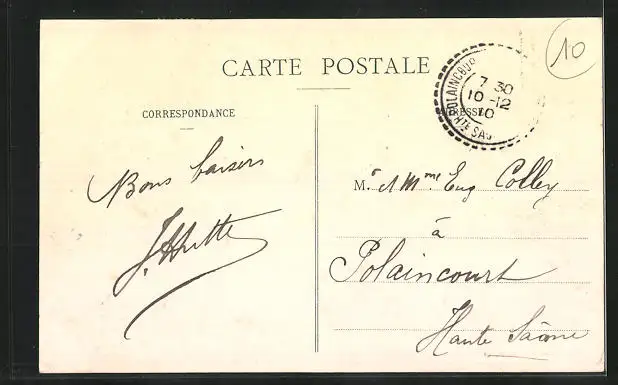 10
CARTE POSTALE
POLAINCOU
7 30
10 - 12
10
HTE SAÔ
CORRESPONDANCE
ADRESSE
Bons baisers
M.r et Mme Eug Colley
à
Polaincourt
Haute Saône